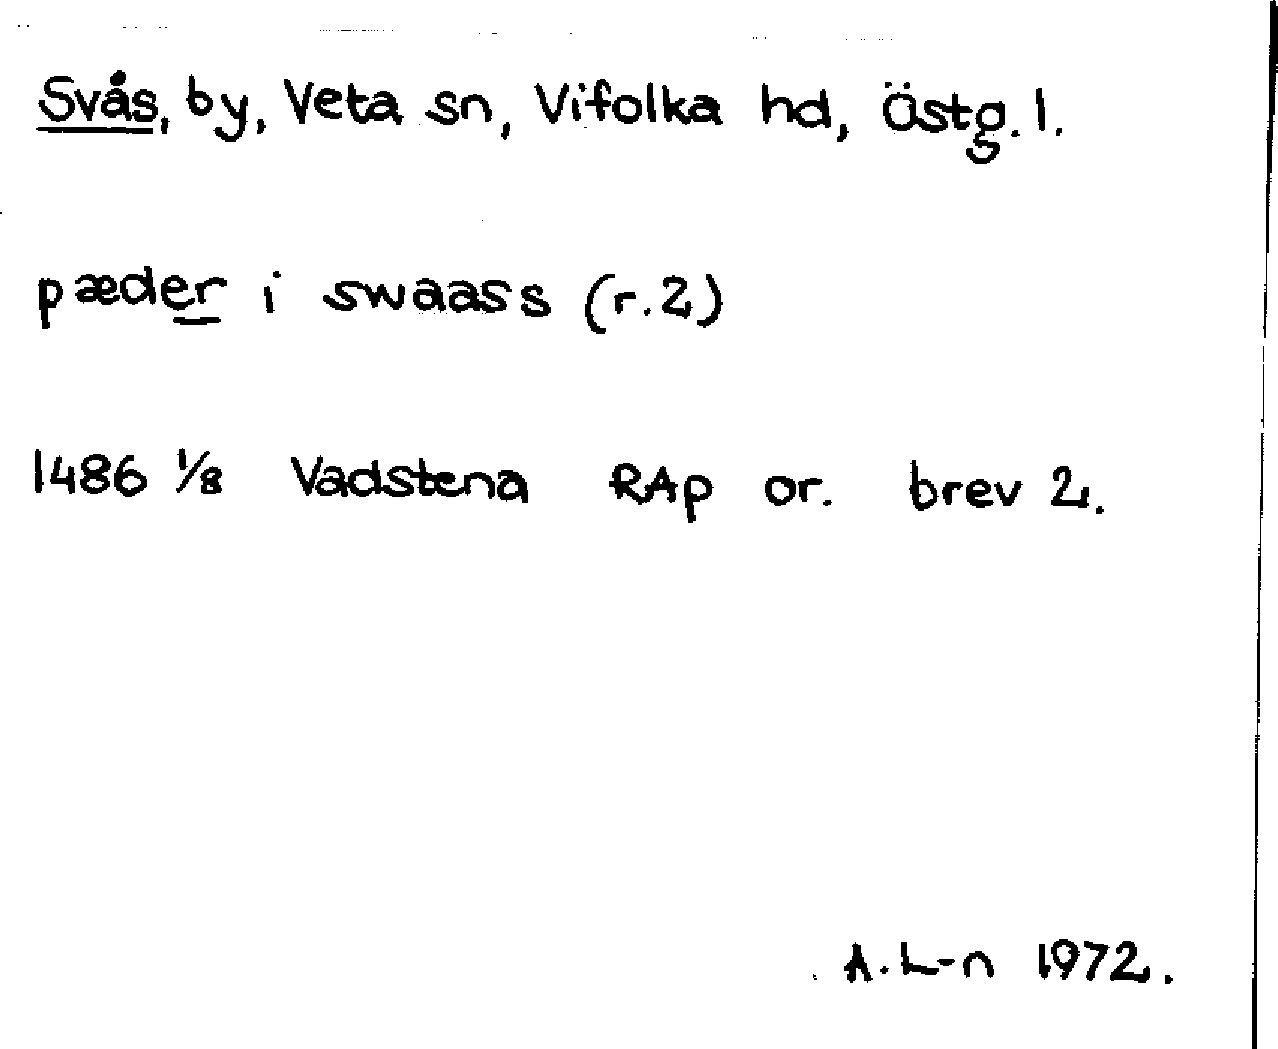 Svås, by, Veta sn, Vifolka hd, Östg. l.
pæder i swaass (r.2)
1486 1/8 Vadstena RAp or. brev 2.
A. L-n 1972.